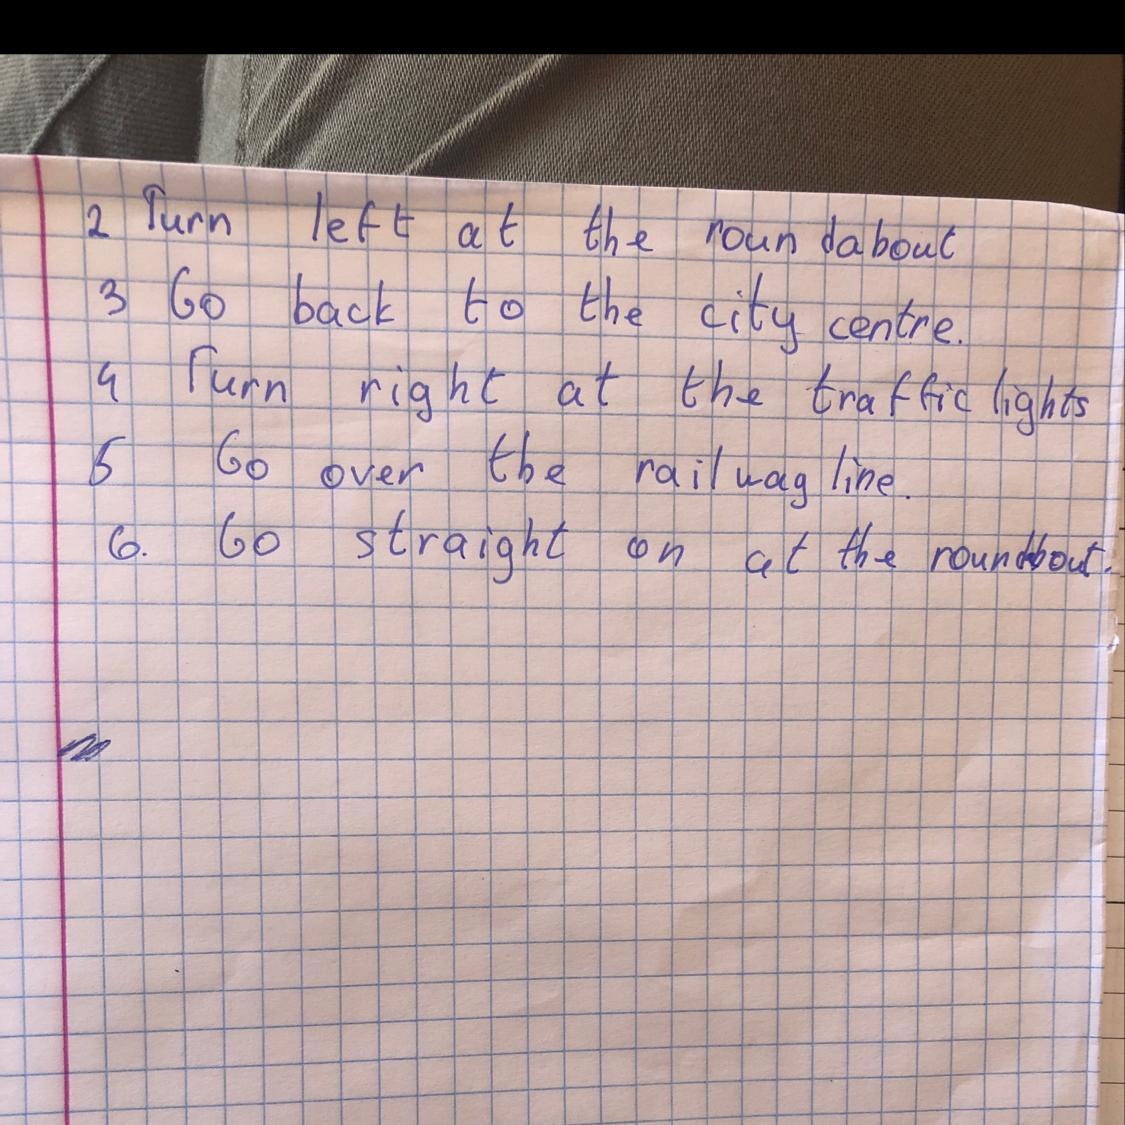 2 Turn left at the roundabout
3 Go back to the city centre.
4 Turn right at the traffic lights
5 Go over the railway line.
6. Go straight on at the roundbout.